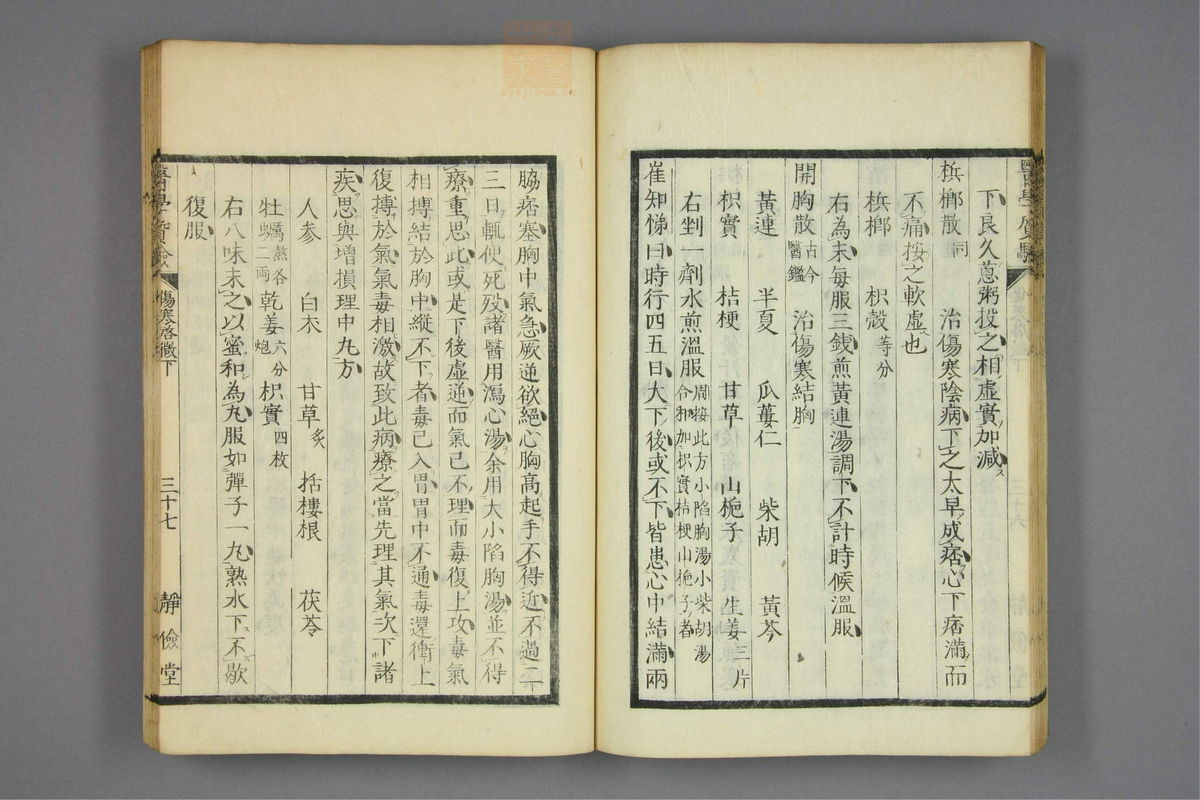 下良久葱粥投之相虛實加減
梹榔散同 治傷寒陰病下之太早成痞心下痞滿而
不痛按之軟虛也
梹榔 枳殼等分
右為末每服三錢煎黃連湯調下不計時候溫服
開胸散古今醫鑑 治傷寒結胸
黃連 半夏 瓜蔞仁 柴胡 黃芩
枳實 桔梗 甘草 山梔子 生姜三片
右剉一劑水煎溫服周按此方小陷胸湯小柴胡湯合和加枳實桔梗山梔子者
崔知悌曰時行四五日大下後或不下皆患心中結滿兩
脇痞塞胸中氣急厥逆欲絕心胸高起手不得近不過二
三日輒便死歿諸醫用瀉心湯余用大小陷胸湯並不得
療重思此或是下後虛逋而氣已不理而毒復上攻毒氣
相搏結於胸中縱不下者毒已入胃胃中不通毒還衝上
復搏於氣氣毒相激故致此病療之當先理其氣次下諸
疾思與增損理中丸方
人參 白朮 甘草炙 括樓根 茯苓
牡蠣熬各二両 乾姜六分炮 枳實四枚
右八味末之以蜜和為丸服如彈子一丸熟水下不歇
復服
傷寒啓微下
三十七
靜儉堂